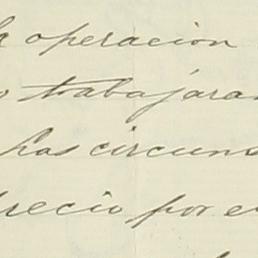 la operacion
o trabajaran
has circuns
precio por e